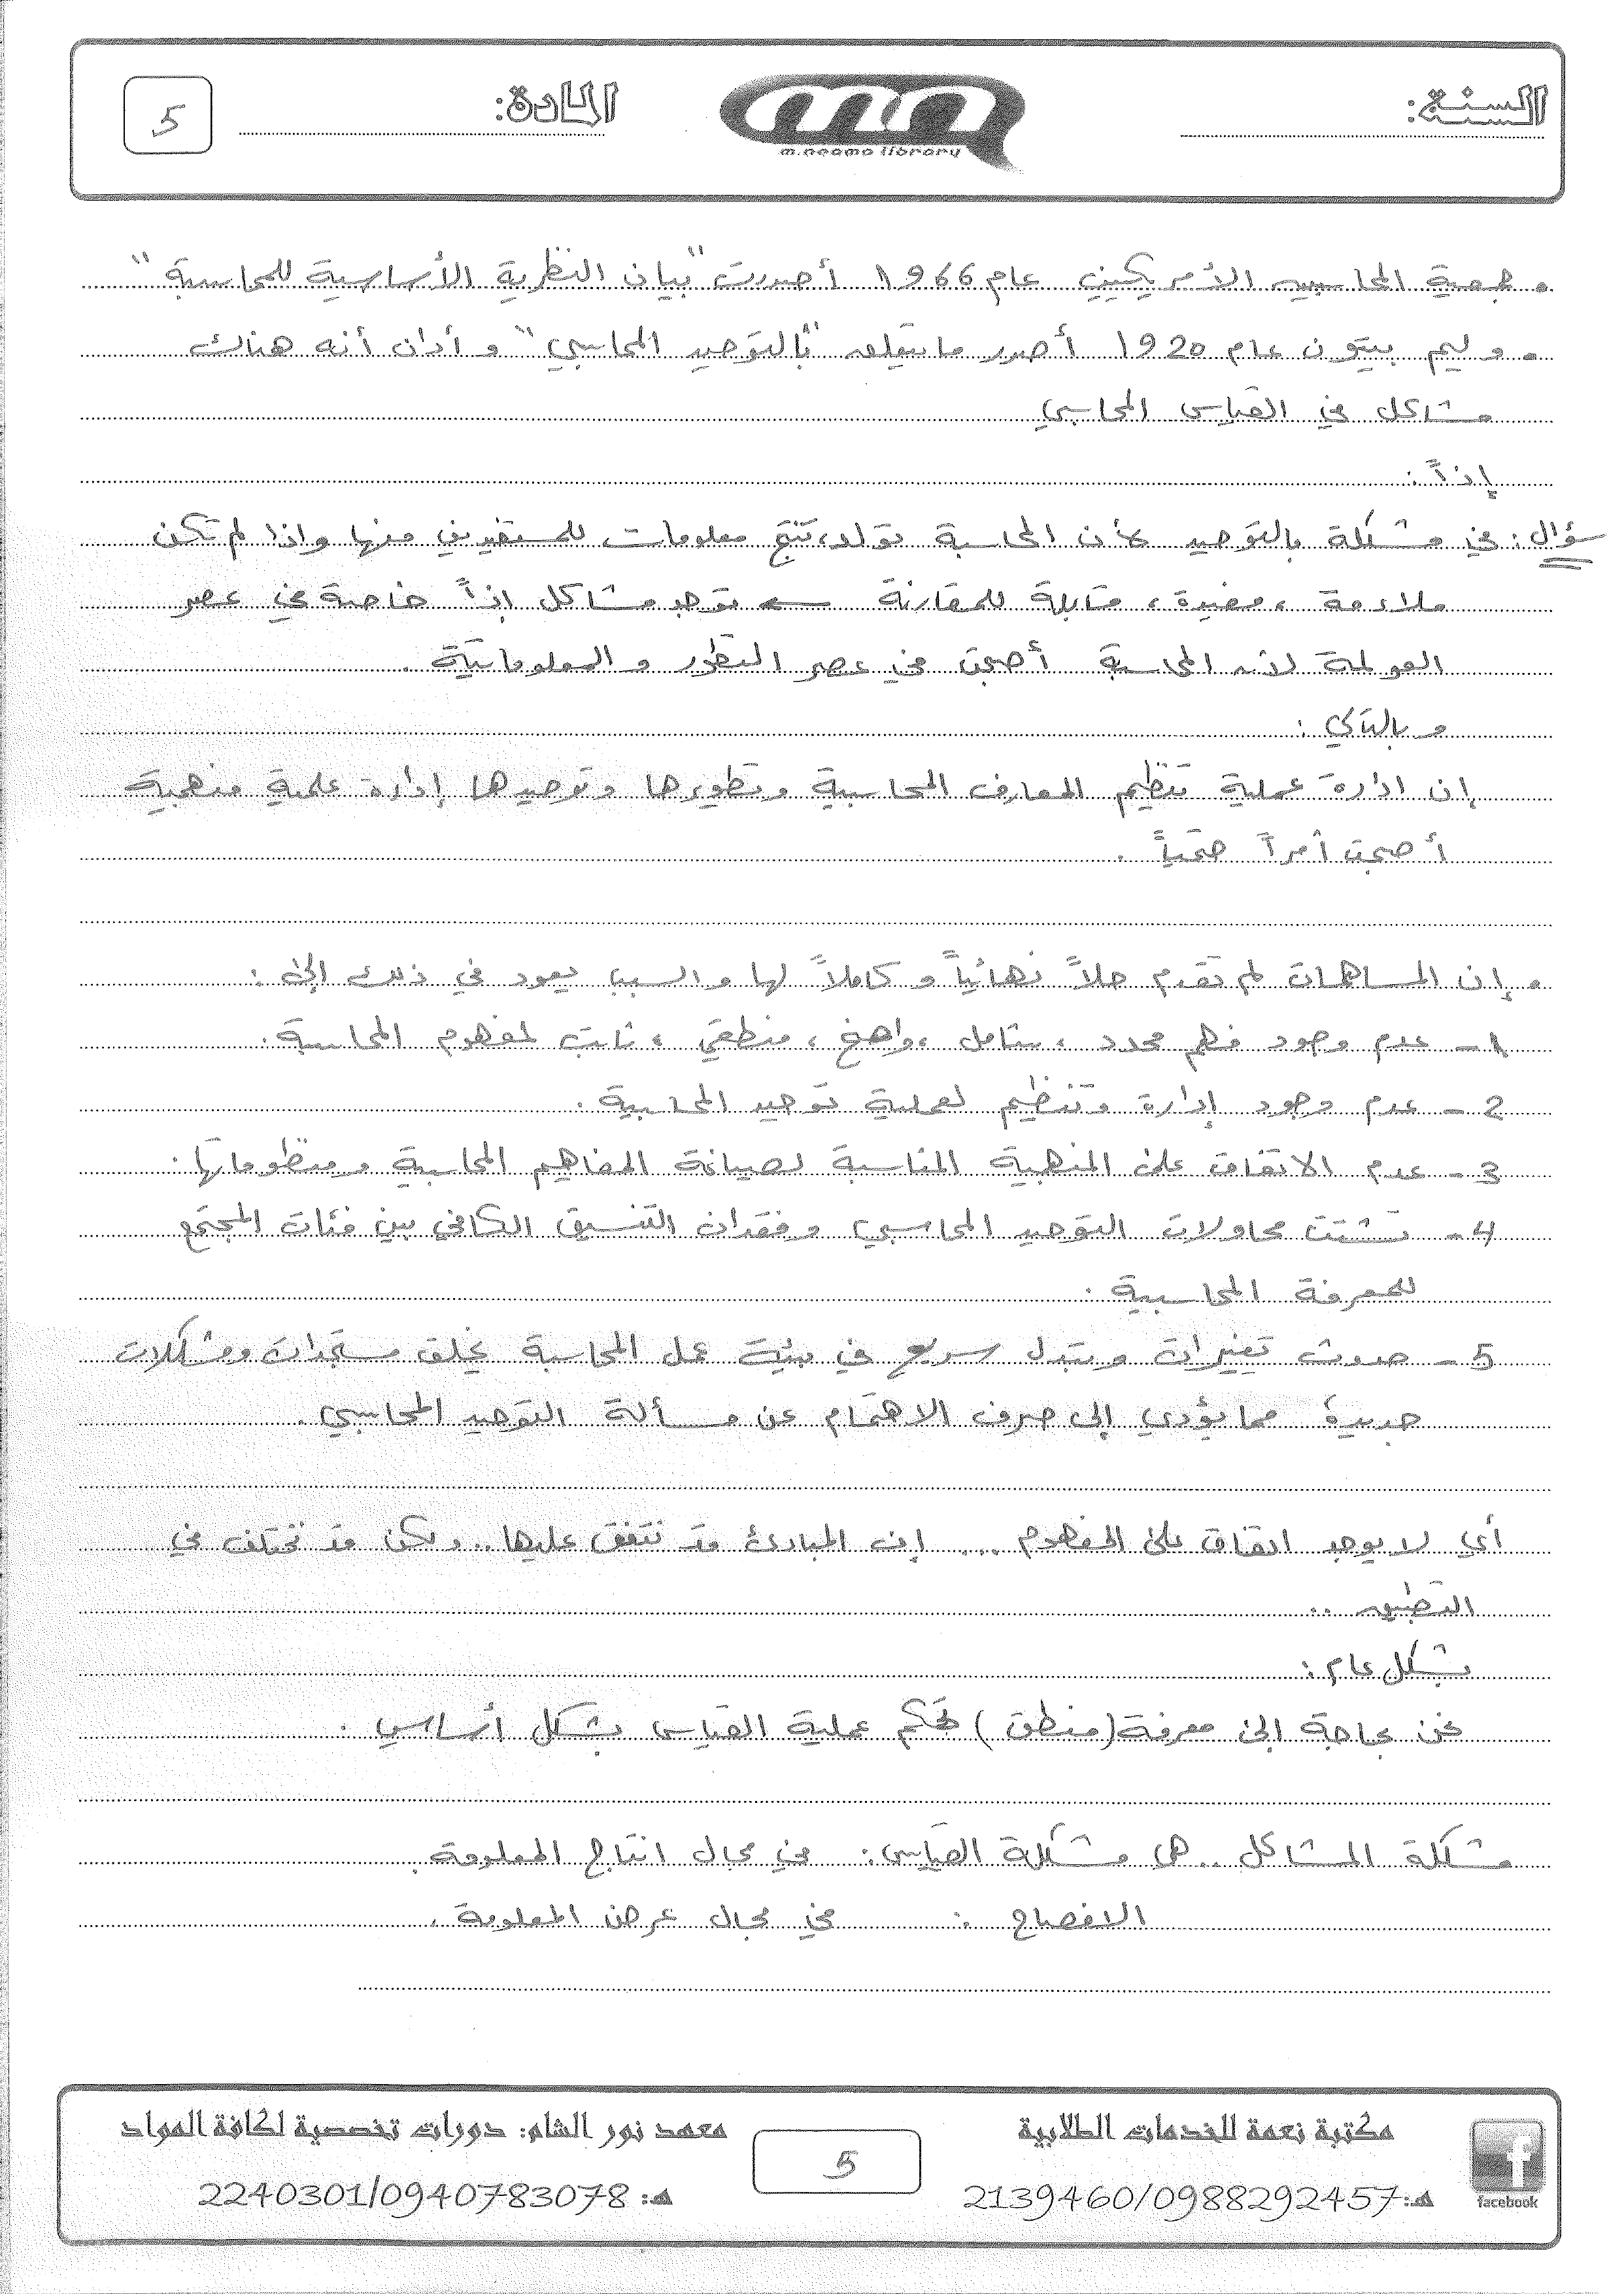 السنة:
m.neama library
المادة:
5
• جمعية المحاسبين الأمريكيين عام 1966 أصدرت "بيان النظرية الأساسية للمحاسبة"
• وليم بيتون عام 1920 أصدر ما يتعلق "بالتوحيد المحاسبي" و أدان أنه هناك
مشاكل في القياس المحاسبي
إذاً :
سؤال: في مشكلة بالتوحيد لأن المحاسبة تولد، تنتج معلومات للمستفيدين منها واذا لم تكن
ملاءمة ، مفيدة ، قابلة للمقارنة ← توجد مشاكل إذاً خاصة في عصر
العولمة لأن المحاسبة أصبحت في عصر التطور و المعلوماتية .
و بالتالي :
إن ادارة عملية تنظيم المعارف المحاسبية وتطويرها وتوحيدها إدارة علمية منهجية
أصبحت أمراً حتمياً .
• إن المساهمات لم تقدم حلاً نهائياً و كاملاً لها والسبب يعود في ذلك إلى :
1- عدم وجود فهم محدد ، شامل ، واضح ، منطقي ، ثابت لمفهوم المحاسبة .
2- عدم وجود إدارة وتنظيم لعملية توحيد المحاسبة .
3- عدم الاتفاق على المنهجية المناسبة لصياغة المفاهيم المحاسبية ومنظوماتها .
4- تشتت محاولات التوحيد المحاسبي وفقدان التنسيق الكافي بين فئات المجتمع
للمعرفة المحاسبية .
5- حدوث تغييرات وتبدل سريع في بيئة عمل المحاسبة يخلق مستجدات ومشكلات
جديدة مما يؤدي إلى صرف الاهتمام عن مسألة التوحيد المحاسبي .
أي لا يوجد اتفاق على المفهوم ... إن المبادئ قد نتفق عليها .. ولكن قد نختلف في
التطبيق ..
بشكل عام :
نحن بحاجة إلى معرفة (منطق) تحكم عملية القياس بشكل أساسي .
مشكلة المشاكل .. هي مشكلة القياس: في مجال انتاج المعلومة .
الافصاح : في مجال عرض المعلومة .
مكتبة نعمة للخدمات الطلابية
هـ: 2139460/0988292457
facebook
5
معهد نور الشام: دورات تخصصية لكافة المواد
هـ: 2240301/0940783078